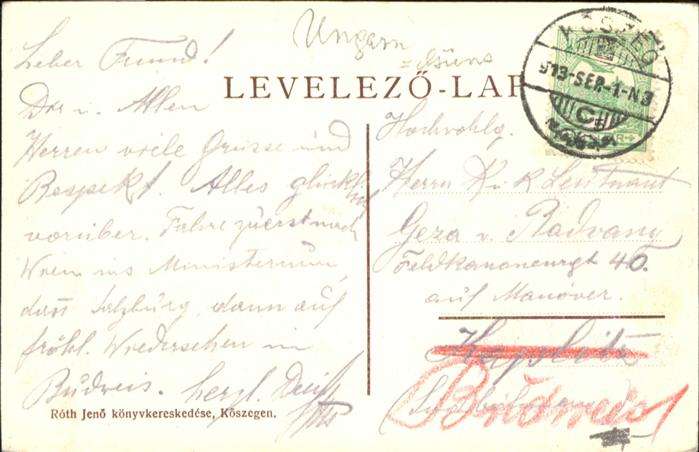 Ungarn
= Güns
Lieber Freund!
LEVELEZŐ-LAP
KŐSZEG
913-SEP-1-N3
Dir u. Allen
Herren viele Grüsse und
Respekt. Alles glückl.
vorüber. Fahre zuerst nach
Wien ins Ministerium,
dann Salzburg, dann auf
fröhl. Wiedersehen in
Budweis. herzl.
Hochwohlg.
Herrn K u K Leutnant
Geza v. Radvany
Feldkanonenrgt 40.
auf Manöver.
Kaplitz
Budweis
Róth Jenő könyvkereskedése, Kőszegen.